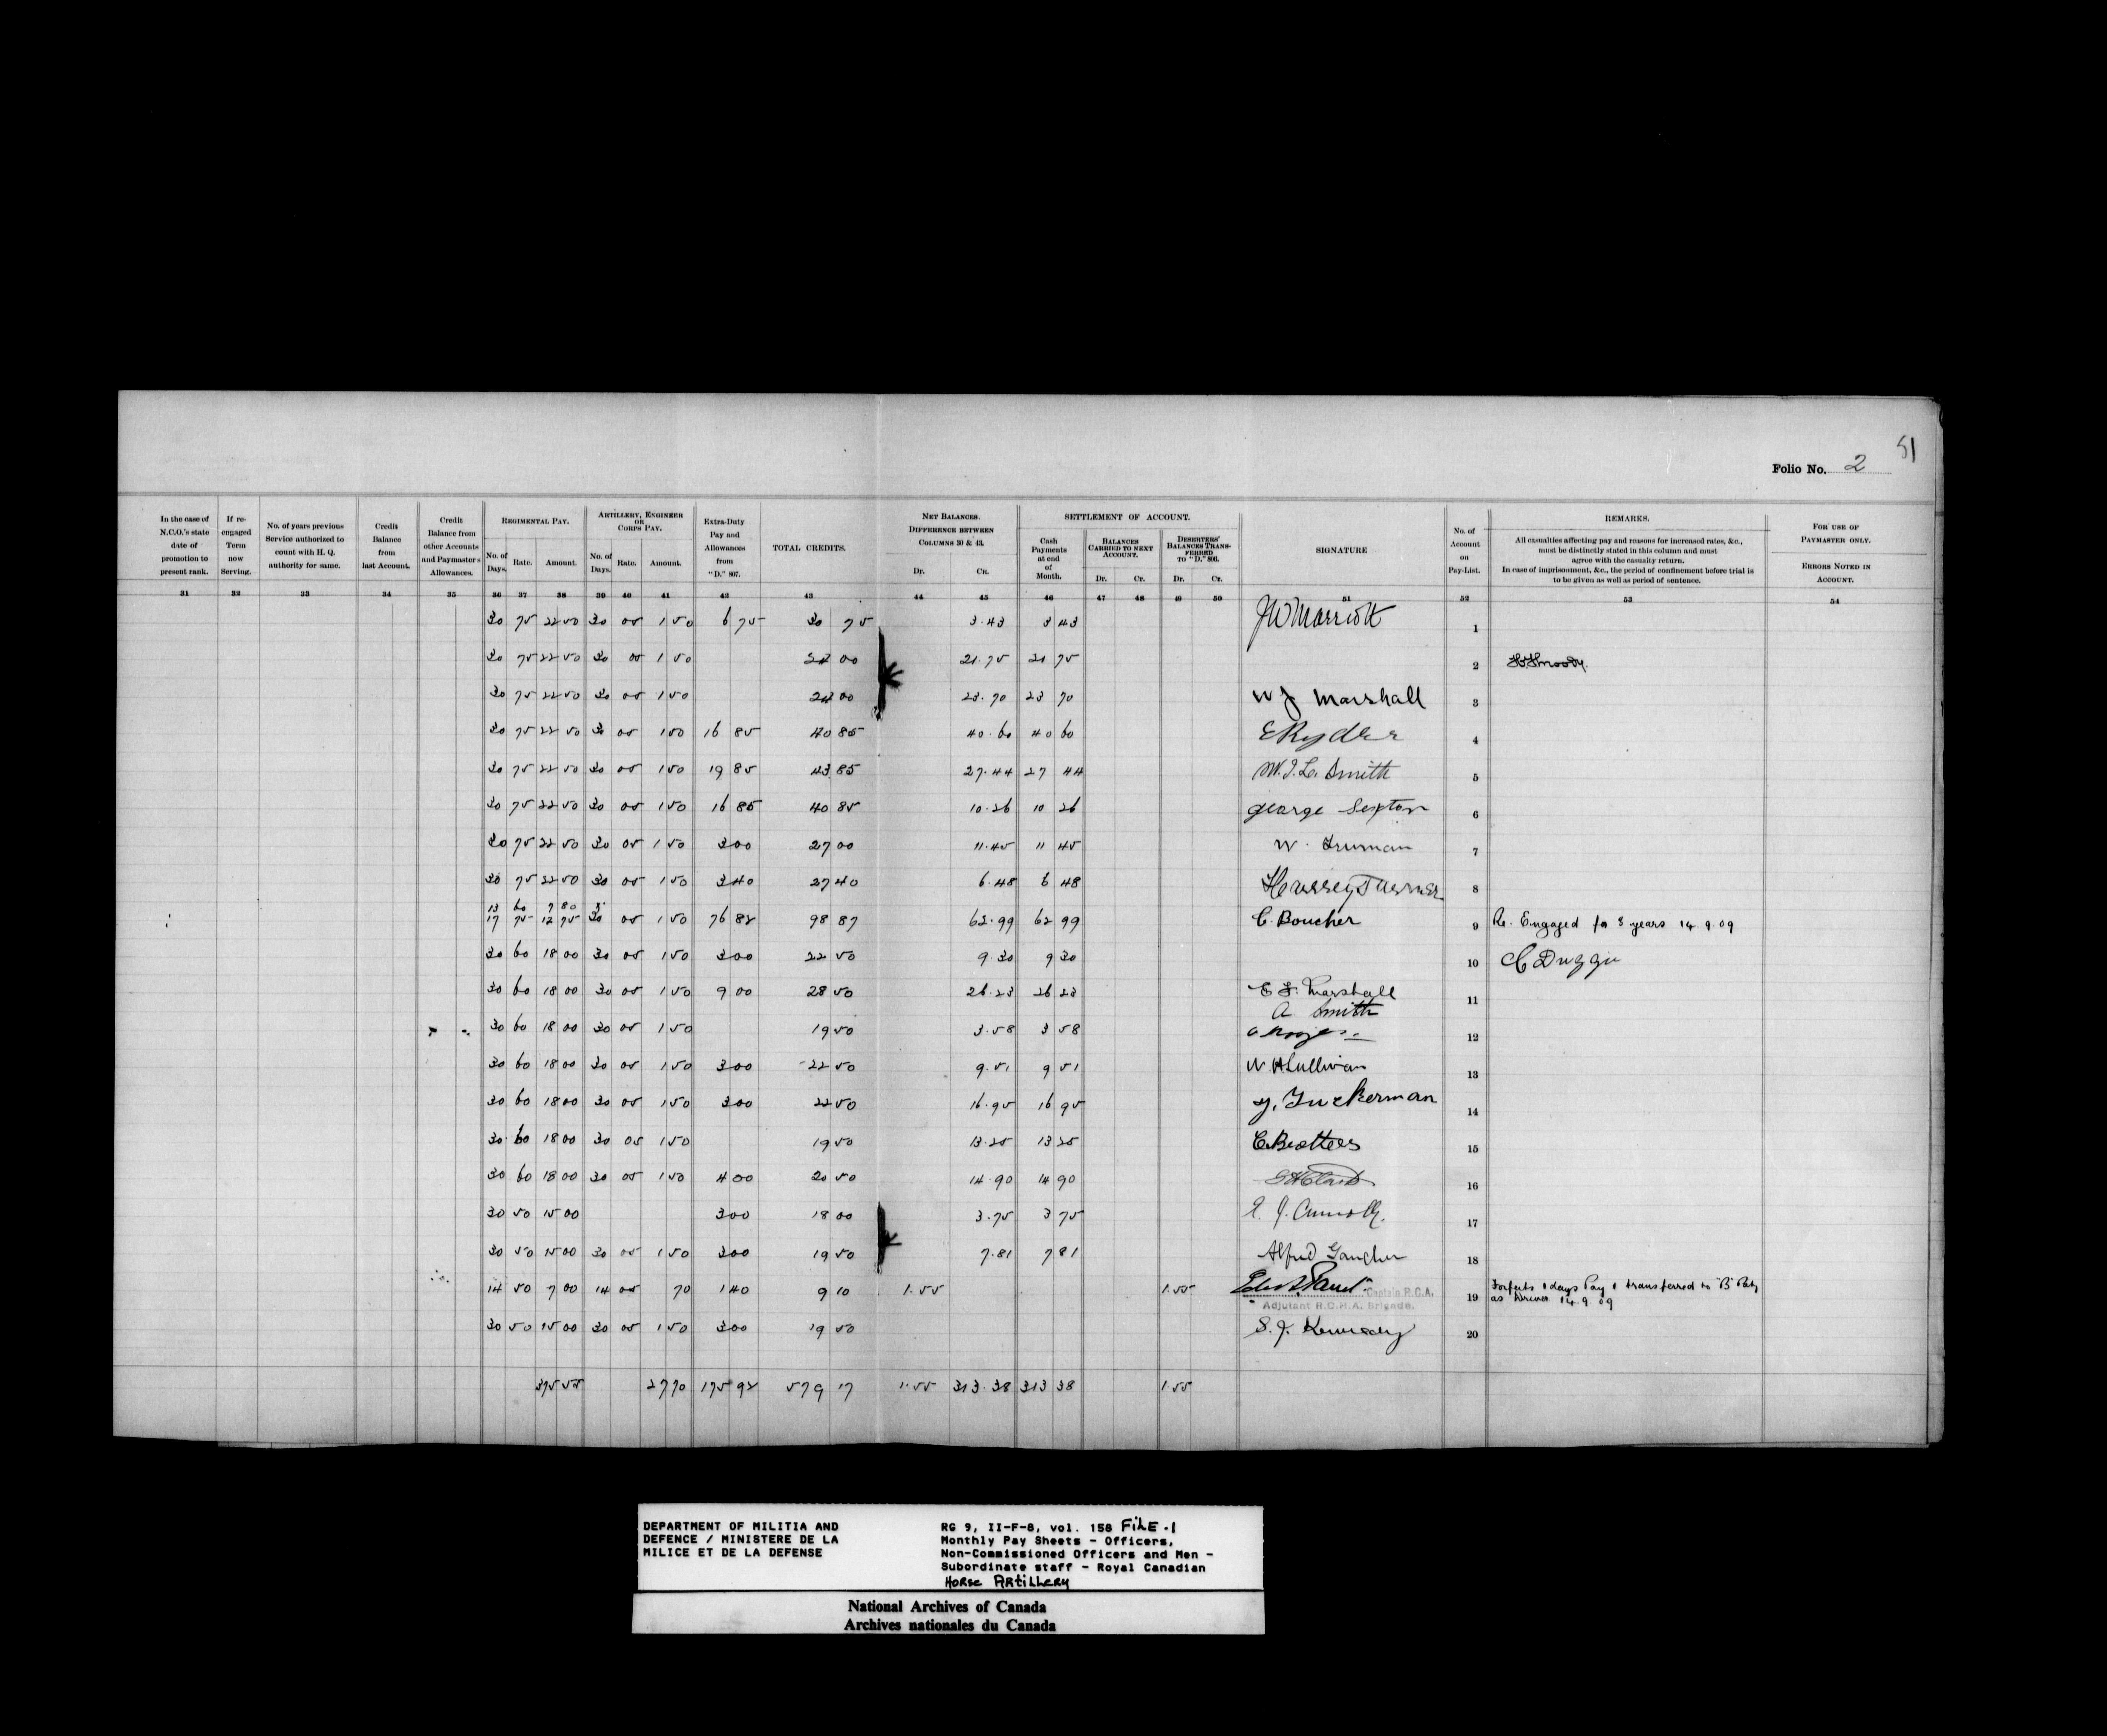 51
Folio No. 2
In the case of N.C.O.'s state date of promotion to present rank.
If re-engaged Term now Serving.
No. of years previous Service authorized to count with H. Q. authority for same.
Credit Balance from last Account.
Credit Balance from other Accounts and Paymasters Allowances.
REGIMENTAL PAY.
No. of Days. Rate. Amount.
ARTILLERY, ENGINEER OR CORPS PAY.
No. of Days. Rate. Amount.
Extra-Duty Pay and Allowances from "D." 807.
TOTAL CREDITS.
NET BALANCES.
DIFFERENCE BETWEEN COLUMNS 30 & 43.
Dr. Cr.
SETTLEMENT OF ACCOUNT.
Cash Payments at end of Month.
BALANCES CARRIED TO NEXT ACCOUNT.
Dr. Cr.
DESERTERS' BALANCES TRANSFERRED TO "D." 806.
Dr. Cr.
SIGNATURE
No. of Account on Pay-List.
REMARKS.
All casualties affecting pay and reasons for increased rates, &c., must be distinctly stated in this column and must agree with the casualty return.
In case of imprisonment, &c., the period of confinement before trial is to be given as well as period of sentence.
FOR USE OF PAYMASTER ONLY.
ERRORS NOTED IN ACCOUNT.
31 32 33 34 35 36 37 38 39 40 41 42 43 44 45 46 47 48 49 50 51 52 53 54
30 75 22 50 30 05 1 50 6 75 30 75 3.43 3 43 JW Marriott 1
30 75 22 50 30 05 1 50 24 00 21.75 21 75 2 Moody
30 75 22 50 30 05 1 50 24 00 23.70 23 70 W J Marshall 3
30 75 22 50 30 05 1 50 16 85 40 85 40.60 40 60 E Ryder 4
30 75 22 50 30 05 1 50 19 85 43 85 27.44 27 44 W.J.L. Smith 5
30 75 22 50 30 05 1 50 16 85 40 85 10.26 10 26 george Sexton 6
30 75 22 50 30 05 1 50 3 00 27 00 11.45 11 45 W. Truman 7
30 75 22 50 30 05 1 50 3 40 27 40 6.48 6 48 Harvey Turner 8
13 60 7 80
17 75 12 75 30 05 1 50 76 82 98 87 62.99 62 99 C. Boucher 9 Re. Engaged for 3 years 14.9.09
30 60 18 00 30 05 1 50 3 00 22 50 9.30 9 30 10 C Duggan
30 60 18 00 30 05 1 50 9 00 28 50 26.23 26 23 E F. Marshall 11
A Smith
30 60 18 00 30 05 1 50 19 50 3.58 3 58 12
30 60 18 00 30 05 1 50 3 00 22 50 9.51 9 51 W H Sullivan 13
30 60 18 00 30 05 1 50 3 00 22 50 16.95 16 95 Tuckerman 14
30 60 18 00 30 05 1 50 19 50 13.25 13 25 C Brothers 15
30 60 18 00 30 05 1 50 4 00 20 50 14.90 14 90 16
30 50 15 00 3 00 18 00 3.75 3 75 17
30 50 15 00 30 05 1 50 3 00 19 50 7.81 7 81 Alfred Gaucher 18
14 50 7 00 14 05 70 1 40 9 10 1.55 1.55 Captain R.C.A. 19 Forfeits 1 days Pay & transferred to "B" Baty
Adjutant R.C.H.A. Brigade. as Driver 14.9.09
30 50 15 00 30 05 1 50 3 00 19 50 S. J. Kennedy 20
375 55 27 70 175 92 579 17 1.55 313.38 313 38 1.55
DEPARTMENT OF MILITIA AND
DEFENCE / MINISTERE DE LA
MILICE ET DE LA DEFENSE
RG 9, II-F-8, vol. 158 FILE.1
Monthly Pay Sheets - Officers,
Non-Commissioned Officers and Men -
Subordinate staff - Royal Canadian
Horse Artillery
National Archives of Canada
Archives nationales du Canada